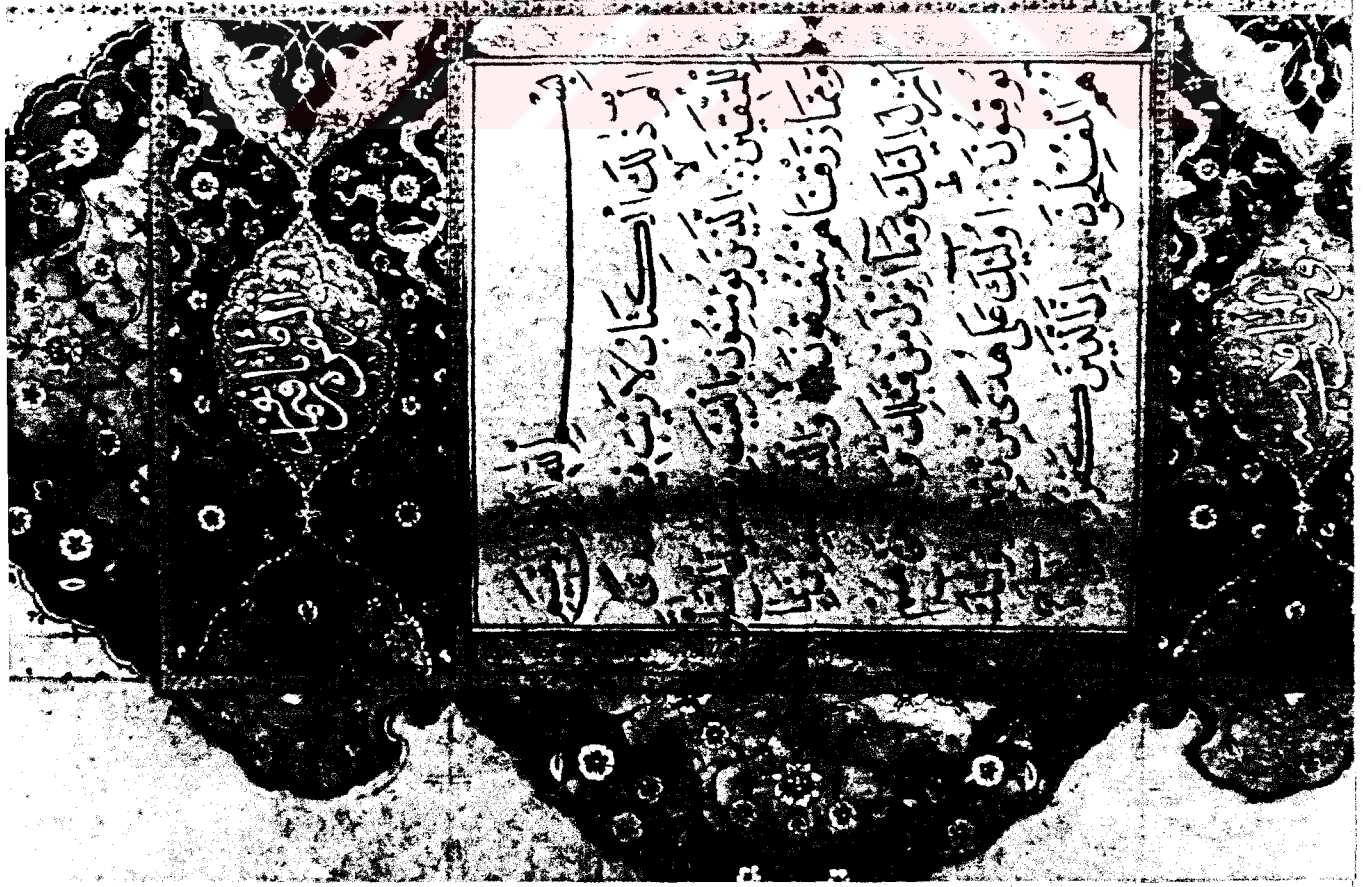 بسم الله الرحمن الرحيم
الم ذلك الكتاب لا ريب فيه هدى
للمتقين الذين يؤمنون بالغيب ويقيمون الصلوة
ومما رزقناهم ينفقون والذين يؤمنون بما
انزل اليك وما انزل من قبلك وبالاخرة هم
يوقنون اولئك على هدى من ربهم واولئك
هم المفلحون ان الذين كفروا سواء